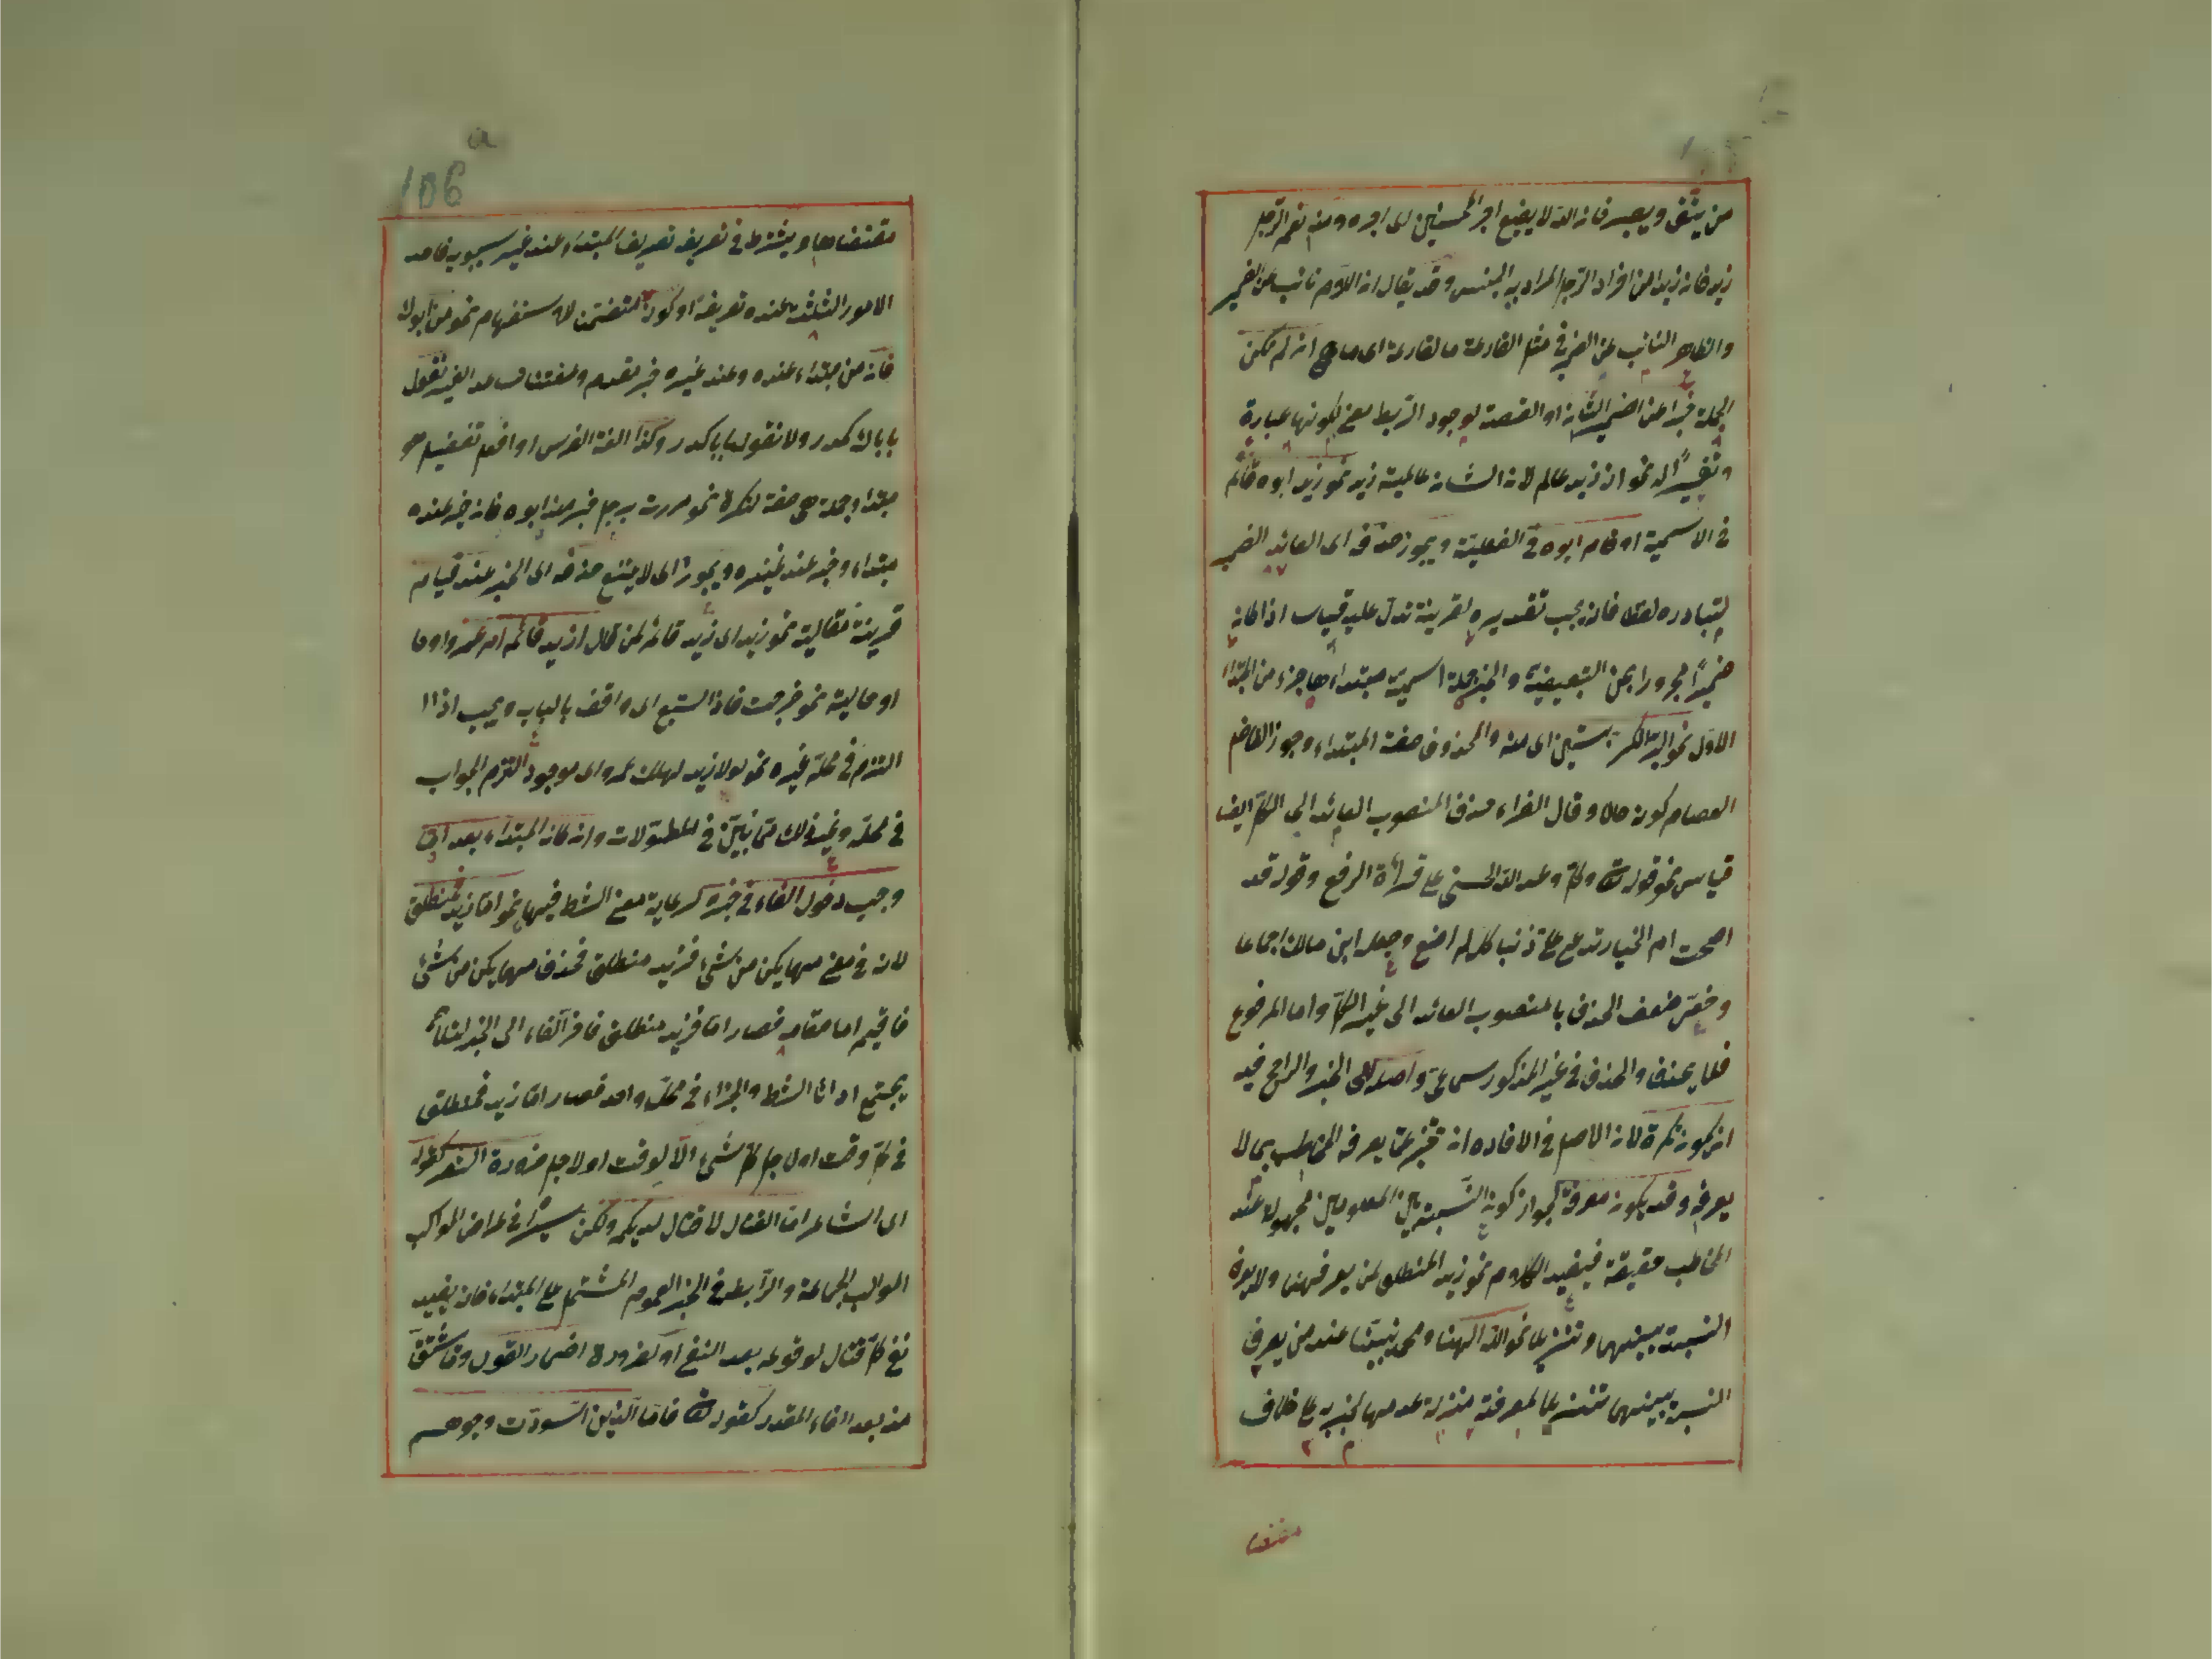 من يتق ويصبر فان الله لا يضيع اجر المحسنين اى اجره ومنه نعم الرجل
زيد فان زيدا من افراد الرجل المراد به الجنس وقد يقال ان اللام نائب عن الضمير
والظاهر النائب عن الضمير فى مثل القارعة ما القارعة اى ما هى ان لم يكن
الجملة خبرا عن ضمير الشان او القصة لوجود الربط معنى لكونها عبارة
وتفسيرًا له نحو ان زيد عالم لان الشان عالمية زيد نحو زيد ابوه قائم
فى الاسمية او قام ابوه فى الفعلية ويجوز حذفه اى العائد الضمير
لتبادره لفظا فانه يجب تقديره لقرينة تدل عليه قياسا اذا كان
ضميرًا مجرورا بمن التبعيضية والخبر جملة اسمية مبتداءها جزء من المبتداء
الاول نحو البر الكر بستين اى منه والمحذوف صفة المبتداء وجوز الفاضل
العصام كونه حالا وقال الفراء حذف المنصوب العائد الى الكل ايضا
قياس نحو قوله تع وكل وعد الله الحسنى على قرائة الرفع وقوله قد
اصبحت ام الخيار تدعى على ذنبا كله لم اصنع وجعل ابن مالك اجماعا
وخص ضعف الحذف بالمنصوب العائد الى غير الكل واما المرفوع
فلا يحذف والحذف فى غير المذكور سماعى واصله اى الخبر والراجح فيه
ان يكون نكرة لان الاصل فى الافاده ان تخبر عما يعرفه المخاطب بما لا
يعرفه وقد يكون معرفة لجواز كون النسبة بين المعلومين مجهولة عند
المخاطب حقيقة فيفيد الكلام نحو زيد المنطلق لمن يعرفهما ولا يعرف
النسبة بينهما وتنزيلا نحو الله الهنا ومحمد نبينا عند من يعرف
النسبة بينهما تنزيلا لمعرفته منزلة عدمها لجريه على خلاف
مقتضا
مقتضاها ويشترط فى تعريفه تعريف المبتداء عند غير سيبويه فاحد
الامور الثلثة عنده تعريفه او كونه متضمن الاستفهام نحو من ابوك
فانه من مبتداء عنده وعند غيره خبر مقدم
مبتداء وجملة هى صفة لنكرة نحو مررت برجل خير منه ابوه فان خير عنده
مبتداء وخبر عند غيره ويجوز اى لا يمتنع حذفه اى الخبر عند قيام
قرينة مقالية نحو زيد اى زيد قائم لمن قال ازيد قائم ام عمرو او
او حالية نحو خرجت فاذا السبع اى واقف بالباب ويجب اذا
التزم فى محله غيره نحو لولا زيد لهلك عمرو اى موجود التزم الجواب
فى محله وغير ذلك مما بين فى المطولات وان كان المبتداء بعد اما
وجب دخول الفاء فى خبره لرعاية معنى الشرط فيها نحو اما زيد فمنطلق
لانه فى معنى مهما يكن من شئ فزيد منطلق فحذف مهما يكن من شئ
فاقيم اما مقامه فصار اما فزيد منطلق فاخر الفاء الى الخبر لئلا
يجتمع اداتا الشرط والجزاء فى محل واحد فصار اما زيد فمنطلق
فى كل وقت او لاجل كل شئ الا لوقت او لاجل ضرورة الشعر كقوله
اى الشاعر اما القتال لا قتال لديكم ولكن سيرًا فى عراض المواكب
المواكب الجماعة والرابط فى الخبر العموم المشتمل على المبتداء فانه يفيد
نفى كل قتال لوقوعه بعد النفى او لضرورة اضمار القول
منه بعد الفاء المقدر كقوله تع فاما الذين اسودت وجوههم